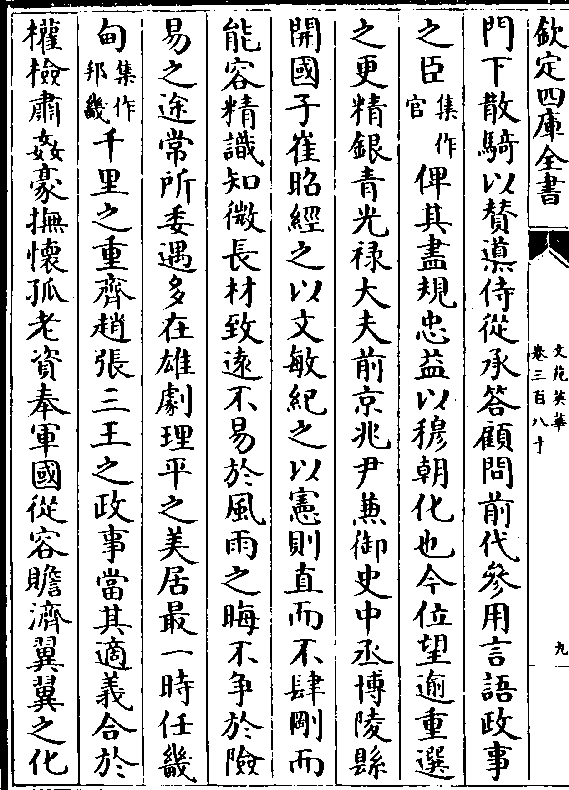 欽定四庫全書
文苑英華
卷三百八十
九
門下散騎以賛導侍從承答顧問前代參用言語政事
之臣集作官俾其盡規忠益以穆朝化也今位望逾重選
之更精銀青光禄大夫前京兆尹兼御史中丞博陵縣
開國子崔昭經之以文敏紀之以憲則直而不肆剛而
能容精識知微長材致遠不易於風雨之晦不爭於險
易之途常所委遇多在雄劇理平之美居最一時任畿
甸集作邦畿千里之重齊趙張三王之政事當其適義合於
權檢肅姦豪撫懷孤老資奉軍國從容贍濟翼翼之化